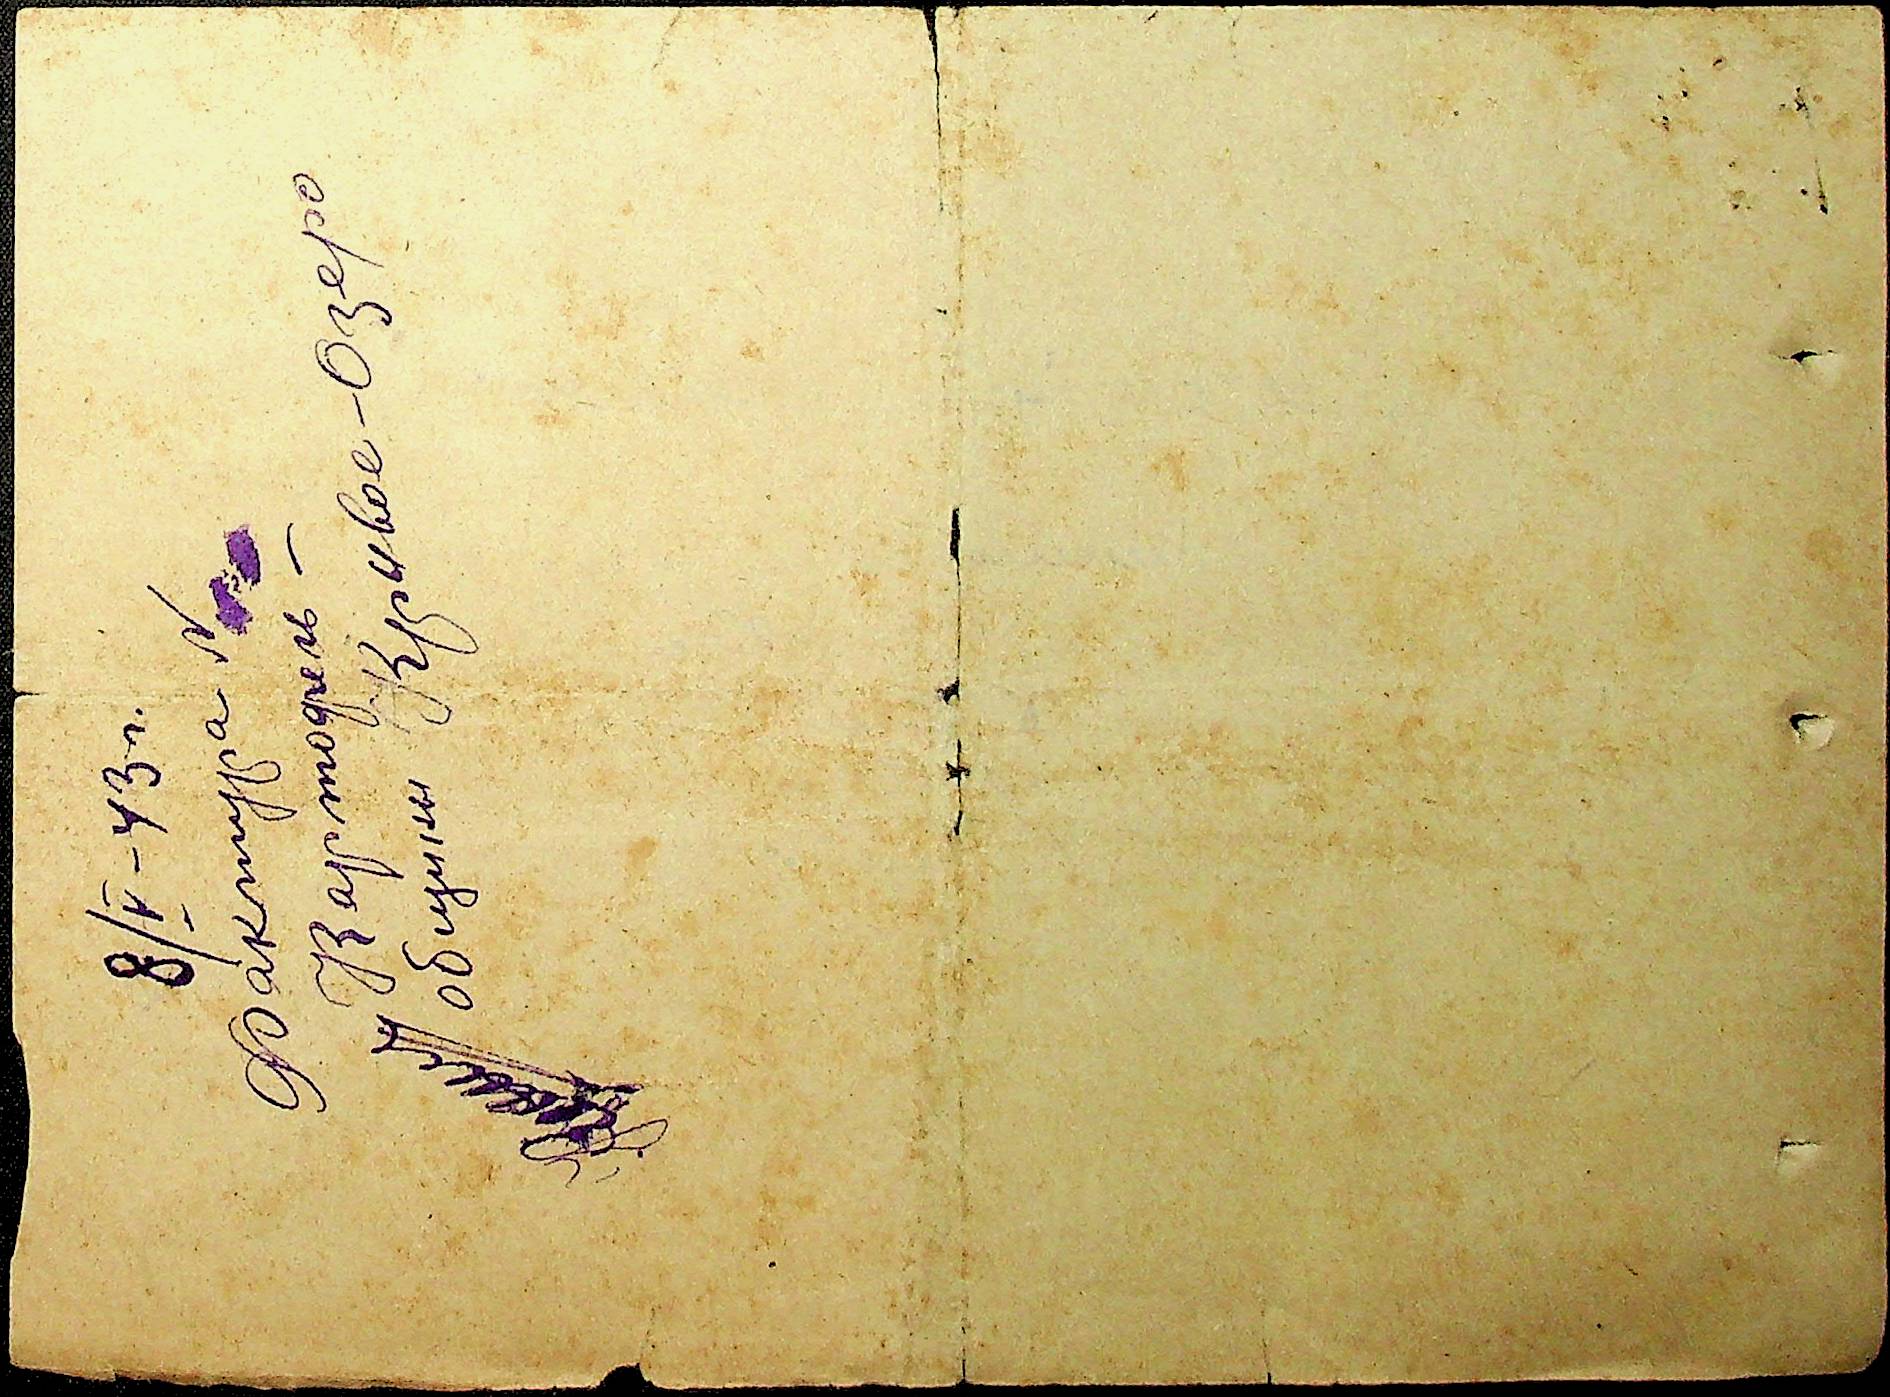 8/V-43 г.
Фактура №
Картофель —
общины Кривое-Озеро